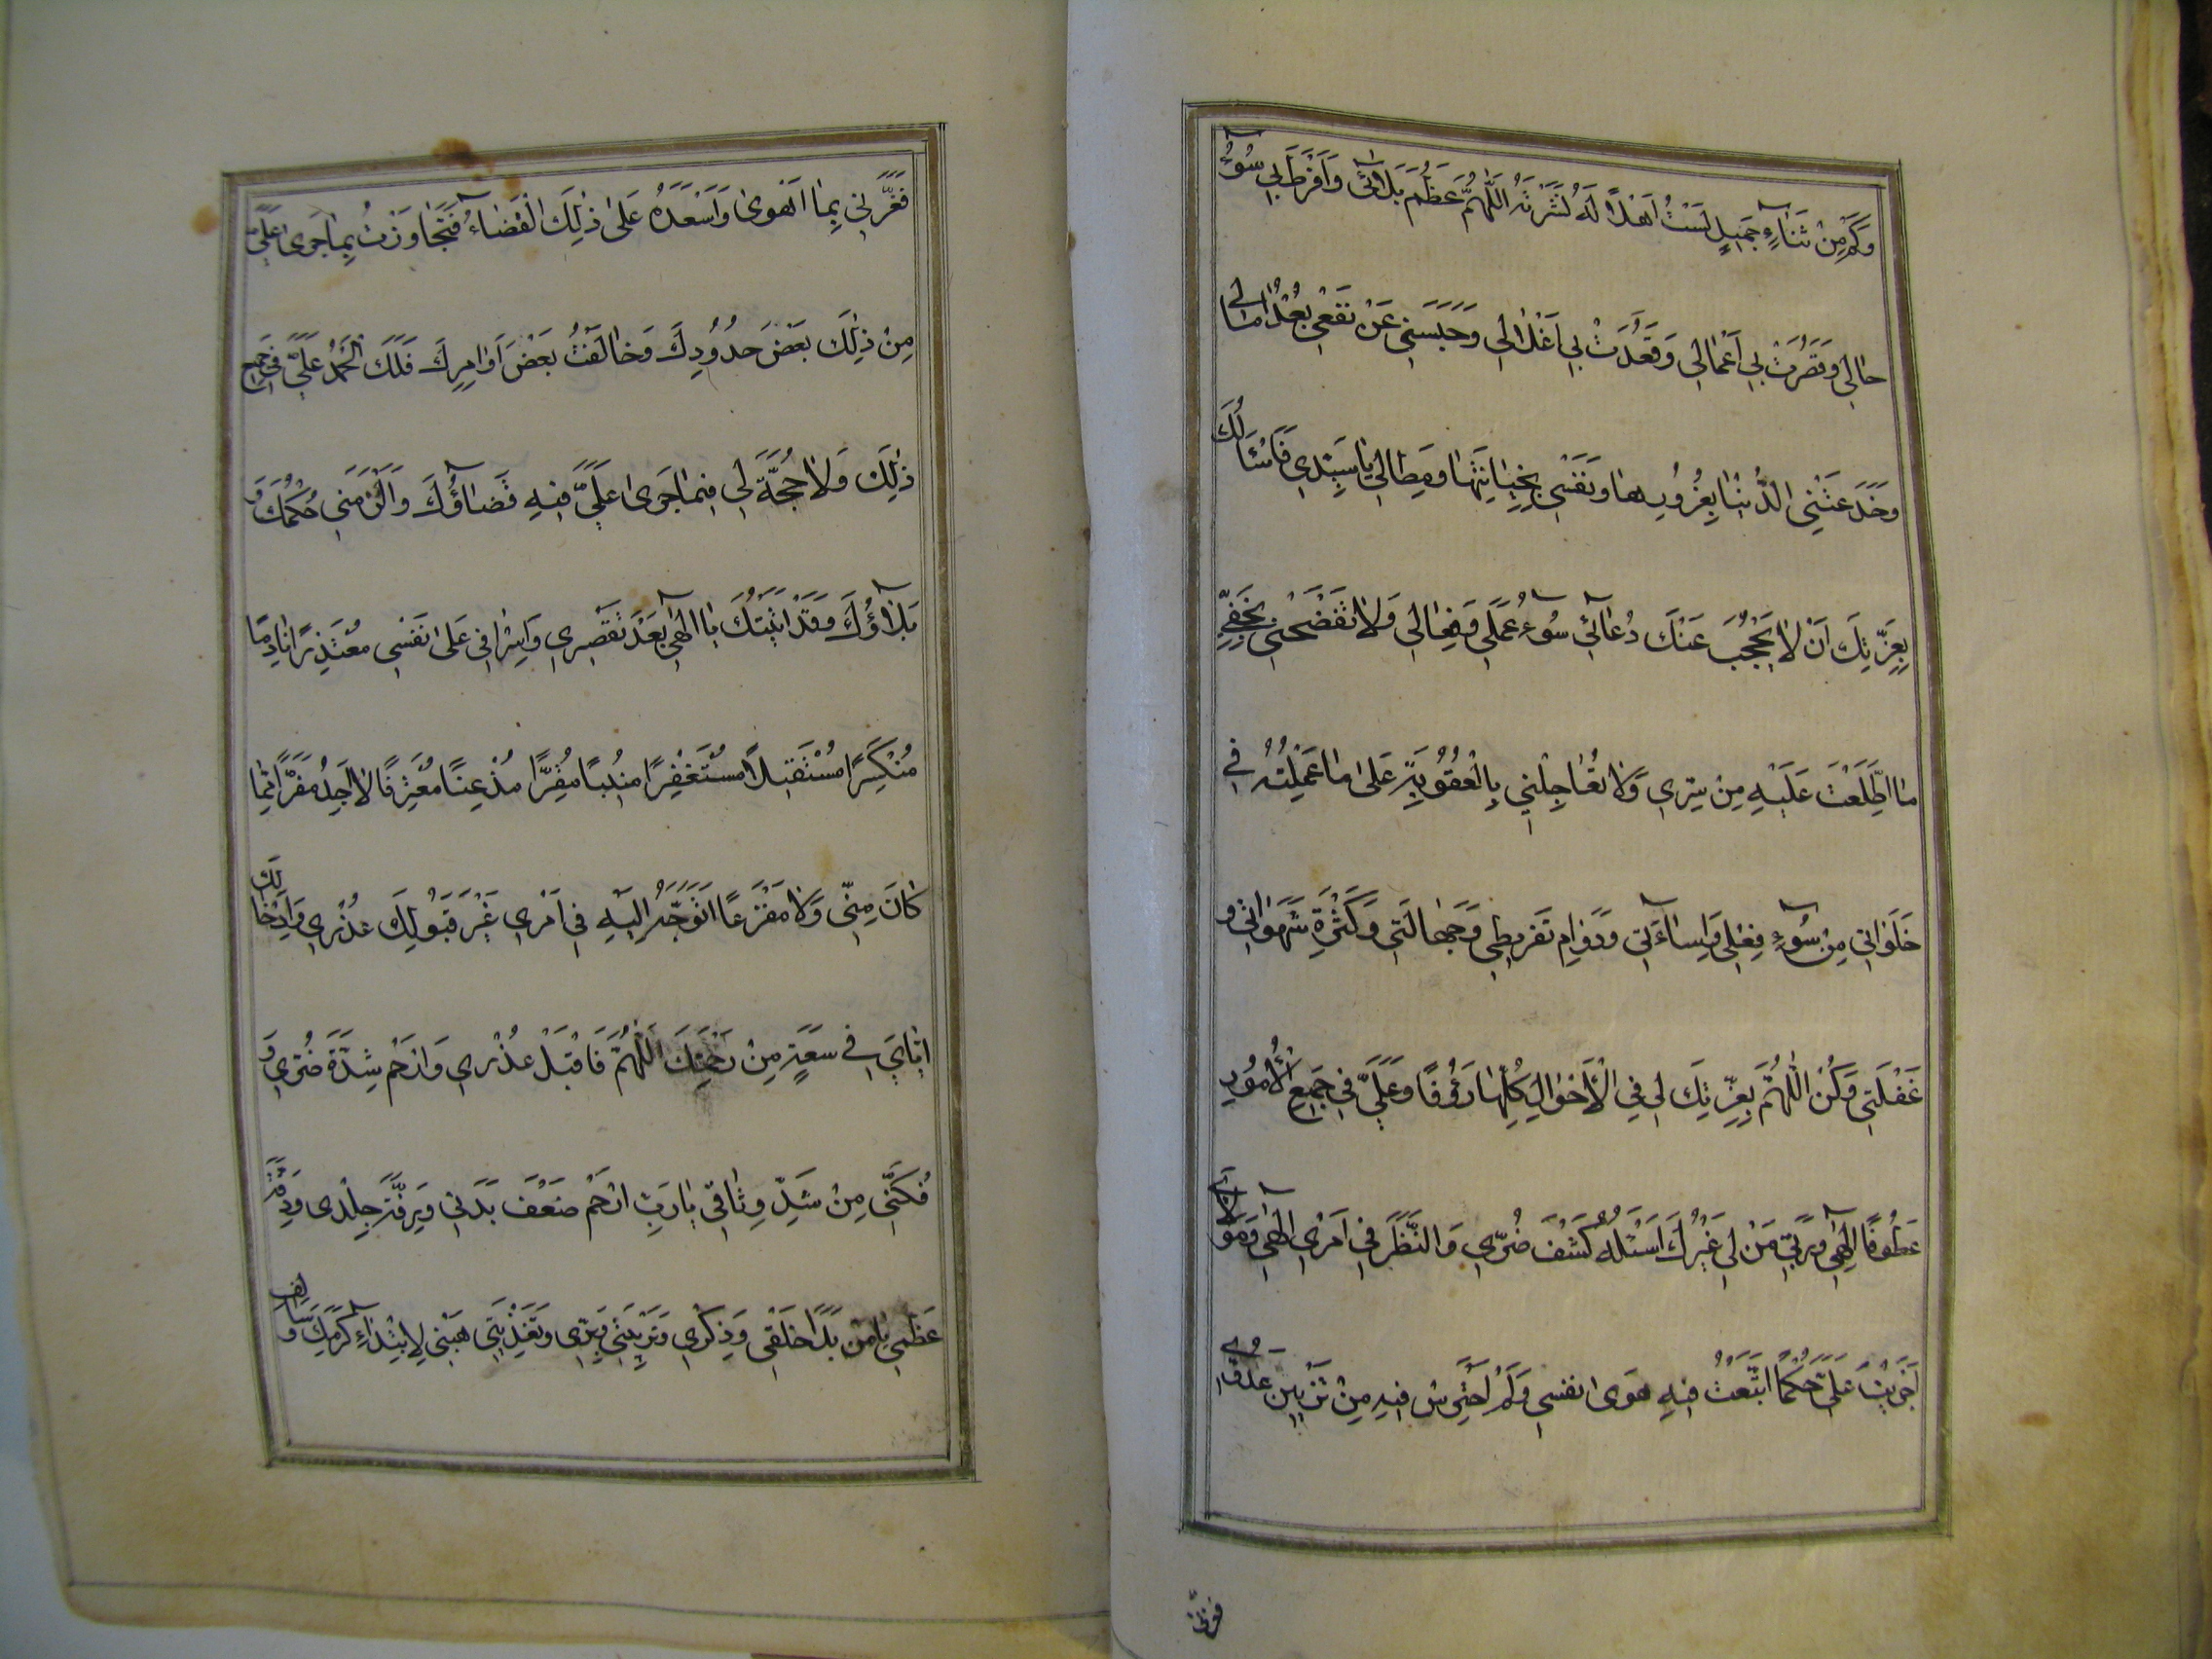 وَكَمْ مِنْ ثَنَاءٍ جَمِيلٍ لَسْتُ اَهْلًا لَهُ نَشَرْتَهُ اَللّٰهُمَّ عَظُمَ بَلَائِي وَاَفْرَطَ بِي سُوءُ
حَالِي وَقَصُرَتْ بِي اَعْمَالِي وَقَعَدَتْ بِي اَغْلَالِي وَحَبَسَنِي عَنْ نَفْعِي بُعْدُ اٰمَالِي
وَخَدَعَتْنِي الدُّنْيَا بِغُرُورِهَا وَنَفْسِي بِخِيَانَتِهَا وَمِطَالِي يَا سَيِّدِي فَاَسْئَلُكَ
بِعِزَّتِكَ اَنْ لَا يَحْجُبَ عَنْكَ دُعَائِي سُوءُ عَمَلِي وَفِعَالِي وَلَا تَفْضَحْنِي بِخَفِيِّ
مَا اطَّلَعْتَ عَلَيْهِ مِنْ سِرِّي وَلَا تُعَاجِلْنِي بِالْعُقُوبَةِ عَلٰى مَا عَمِلْتُهُ فِي
خَلَوَاتِي مِنْ سُوءِ فِعْلِي وَاِسَاءَتِي وَدَوَامِ تَفْرِيطِي وَجَهَالَتِي وَكَثْرَةِ شَهَوَاتِي وَ
غَفْلَتِي وَكُنِ اللّٰهُمَّ بِعِزَّتِكَ لِي فِي الْاَحْوَالِ كُلِّهَا رَؤُفًا وَعَلَيَّ فِي جَمِيعِ الْاُمُورِ
عَطُوفًا اِلٰهِي وَرَبِّي مَنْ لِي غَيْرُكَ اَسْئَلُهُ كَشْفَ ضُرِّي وَالنَّظَرَ فِي اَمْرِي اِلٰهِي وَمَوْلَايَ
اَجْرَيْتَ عَلَيَّ حُكْمًا اتَّبَعْتُ فِيهِ هَوٰى نَفْسِي وَلَمْ اَحْتَرِسْ فِيهِ مِنْ تَزْيِينِ عَدُوِّي
فغرّني
فَغَرَّنِي بِمَا اَهْوٰى وَاَسْعَدَهُ عَلٰى ذٰلِكَ الْقَضَاءُ فَتَجَاوَزْتُ بِمَا جَرٰى عَلَيَّ
مِنْ ذٰلِكَ بَعْضَ حُدُودِكَ وَخَالَفْتُ بَعْضَ اَوَامِرِكَ فَلَكَ الْحَمْدُ عَلَيَّ فِي جَمِيعِ
ذٰلِكَ وَلَا حُجَّةَ لِي فِيمَا جَرٰى عَلَيَّ فِيهِ قَضَاؤُكَ وَاَلْزَمَنِي حُكْمُكَ وَ
بَلَاؤُكَ وَقَدْ اَتَيْتُكَ يَا اِلٰهِي بَعْدَ تَقْصِيرِي وَاِسْرَافِي عَلٰى نَفْسِي مُعْتَذِرًا نَادِمًا
مُنْكَسِرًا مُسْتَقِيلًا مُسْتَغْفِرًا مُنِيبًا مُقِرًّا مُذْعِنًا مُعْتَرِفًا لَا اَجِدُ مَفَرًّا مِمَّا
كَانَ مِنِّي وَلَا مَفْزَعًا اَتَوَجَّهُ اِلَيْهِ فِي اَمْرِي غَيْرَ قَبُولِكَ عُذْرِي وَاِدْخَالِكَ
اِيَّايَ فِي سَعَةٍ مِنْ رَحْمَتِكَ اَللّٰهُمَّ فَاقْبَلْ عُذْرِي وَارْحَمْ شِدَّةَ ضُرِّي وَ
فُكَّنِي مِنْ شَدِّ وِثَاقِي يَا رَبِّ ارْحَمْ ضَعْفَ بَدَنِي وَرِقَّةَ جِلْدِي وَدِقَّةَ
عَظْمِي يَا مَنْ بَدَاَ خَلْقِي وَذِكْرِي وَتَرْبِيَتِي وَبِرِّي وَتَغْذِيَتِي هَبْنِي لِابْتِدَاءِ كَرَمِكَ وَسَالِفِ